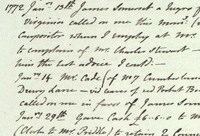 1772 Jan. 13th James Somerset a Negro of
Virginia called on me this morng.
Carpenter whom I employ at Mr.
to complain of Mr. Charles Stewart
him the best advice I could.—
Jan. 14 Mr. Cade (of No 7 Cumberland
Drury Lane — vid ears ed
called on me in favor of James Somer
Jan. 29th Gave Cash £6.6.0 to M
(Clerk to Mr. Priddle) to retain 2 Coun